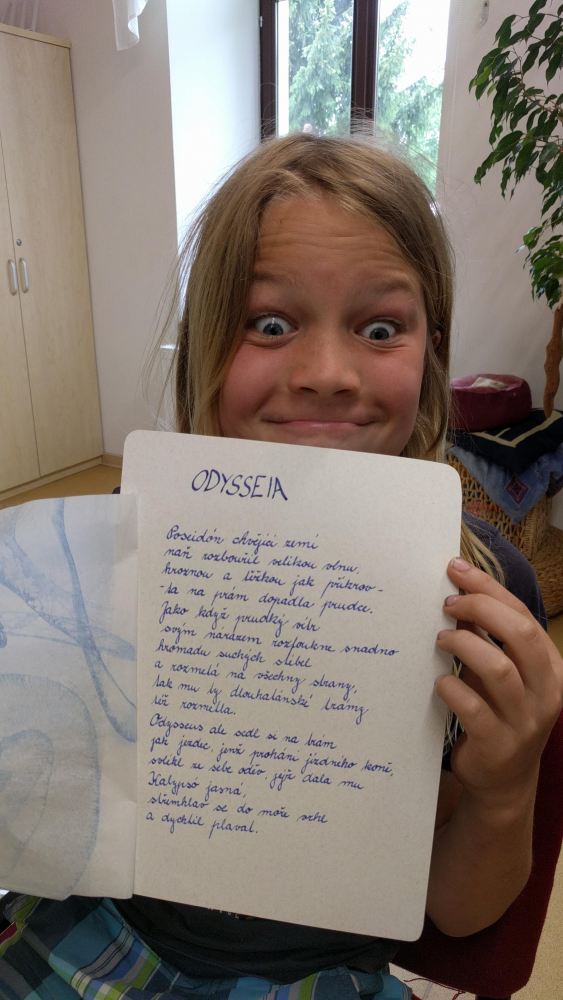 ODYSSEIA
Poseidón chvějící zemí
naň rozbouřil velikou vlnu,
hroznou a tížkou jak příkrov -
-ta na prám dopadla prudce.
Jako když prudký vítr
svým nárazem rozfoukne snadno
hromadu suchých stébel
a rozmetá na všechny strany,
tak mu ty dlouhatánské trámy
též rozmetla.
Odysseus ale sedl si na trám
jak jezdec, jenž prohání jízdního koně,
svlékl ze sebe oděv, jejž dala mu
Kalypsó jasná,
střemhlav se do moře vrhl
a dychtil plaval.